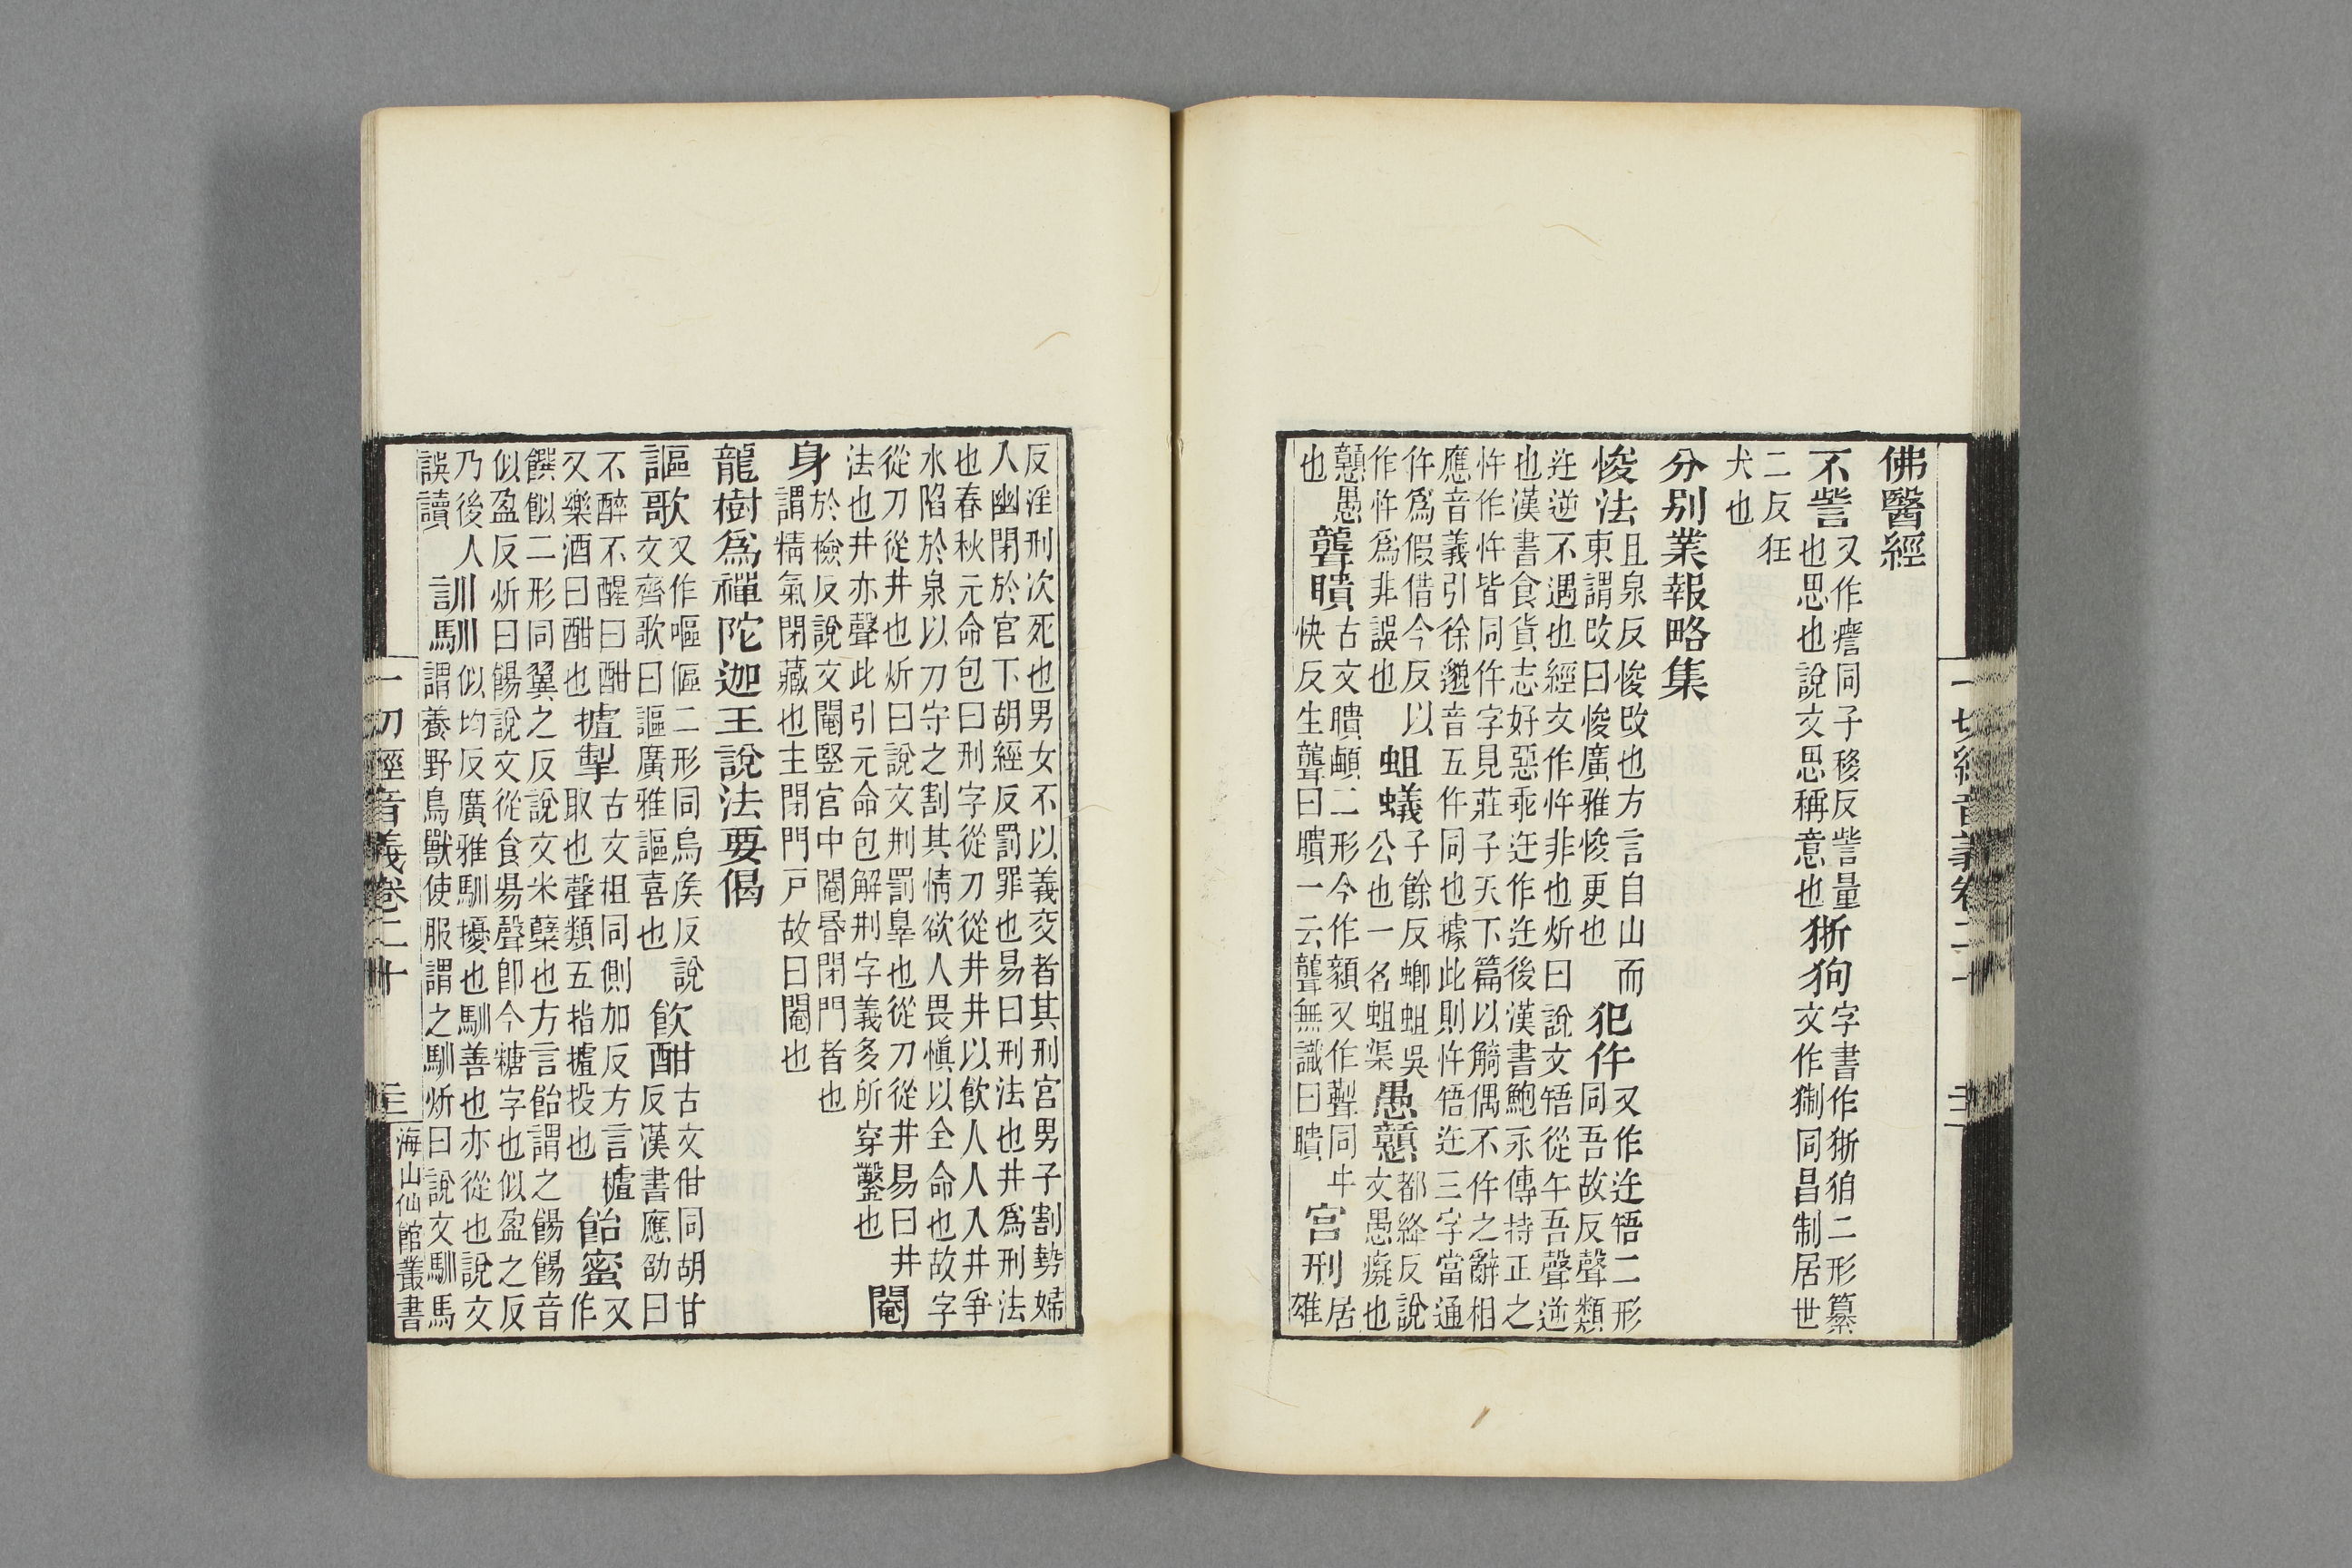 佛醫經
不訾又作𧩥同子移反訾量也思也說文思稱意也狾狗字書作狾狛二形纂文作猘同昌制居世
二反狂犬也
分别業報略集
悛法且泉反悛改也方言自山而東謂改曰悛廣雅悛更也犯仵又作迕啎二形同吾故反聲類
迕逆不遇也經文作忤非也炘曰說文啎從午吾聲逆也漢書食貨志好惡乖迕作迕後漢書鮑永傳持正之
忤作忤皆同仵字見莊子天下篇以觭偶不仵之辭相應音義引徐邈音五仵同也據此則忤啎迕三字當通
仵爲假借今反以作忤爲非誤也蛆蟻子餘反螂蛆吳公也一名蛆渠愚戇都絳反說文愚癡也
戇愚也聾聵古文聵顱二形今作顡又作聲同牛快反生聾曰聵一云聾無識曰聵宮刑居雄
一切經音義卷二十
反淫刑次死也男女不以義交者其刑宮男子割勢婦人幽閉於官下胡經反罰罪也易曰刑法也井爲刑法
也春秋元命包曰刑字從刀從井井以飲人人入井爭水陷於泉以刀守之割其情欲人畏愼以全命也故字
從刀從井也炘曰說文荆罰辠也從刀從井易曰井法也井亦聲此引元命包解荆字義多所穿鑿也閹
身於檢反說文閹豎官中閹昏閉門者也謂精氣閉藏也主閉門戶故曰閹也
龍樹爲禪陀迦王說法要偈
謳歌又作嘔傴二形同烏矦反說文齊歌曰謳廣雅謳喜也飮酣古文佄同胡甘反漢書應劭曰
不醉不醒曰酣又樂酒曰酣也摣掣古文柤同側加反方言樝取也聲類五指摣投也飴蜜又作
饌飤二形同翼之反說文米糵也方言飴謂之餳餳音似盈反炘曰餳說文從食昜聲卽今糖字也似盈之反
乃後人誤讀訓馴似均反廣雅馴擾也馴善也亦從也說文馴馬謂養野鳥獸使服謂之馴炘曰說文馴馬
一切經音義卷二十
海山仙館叢書